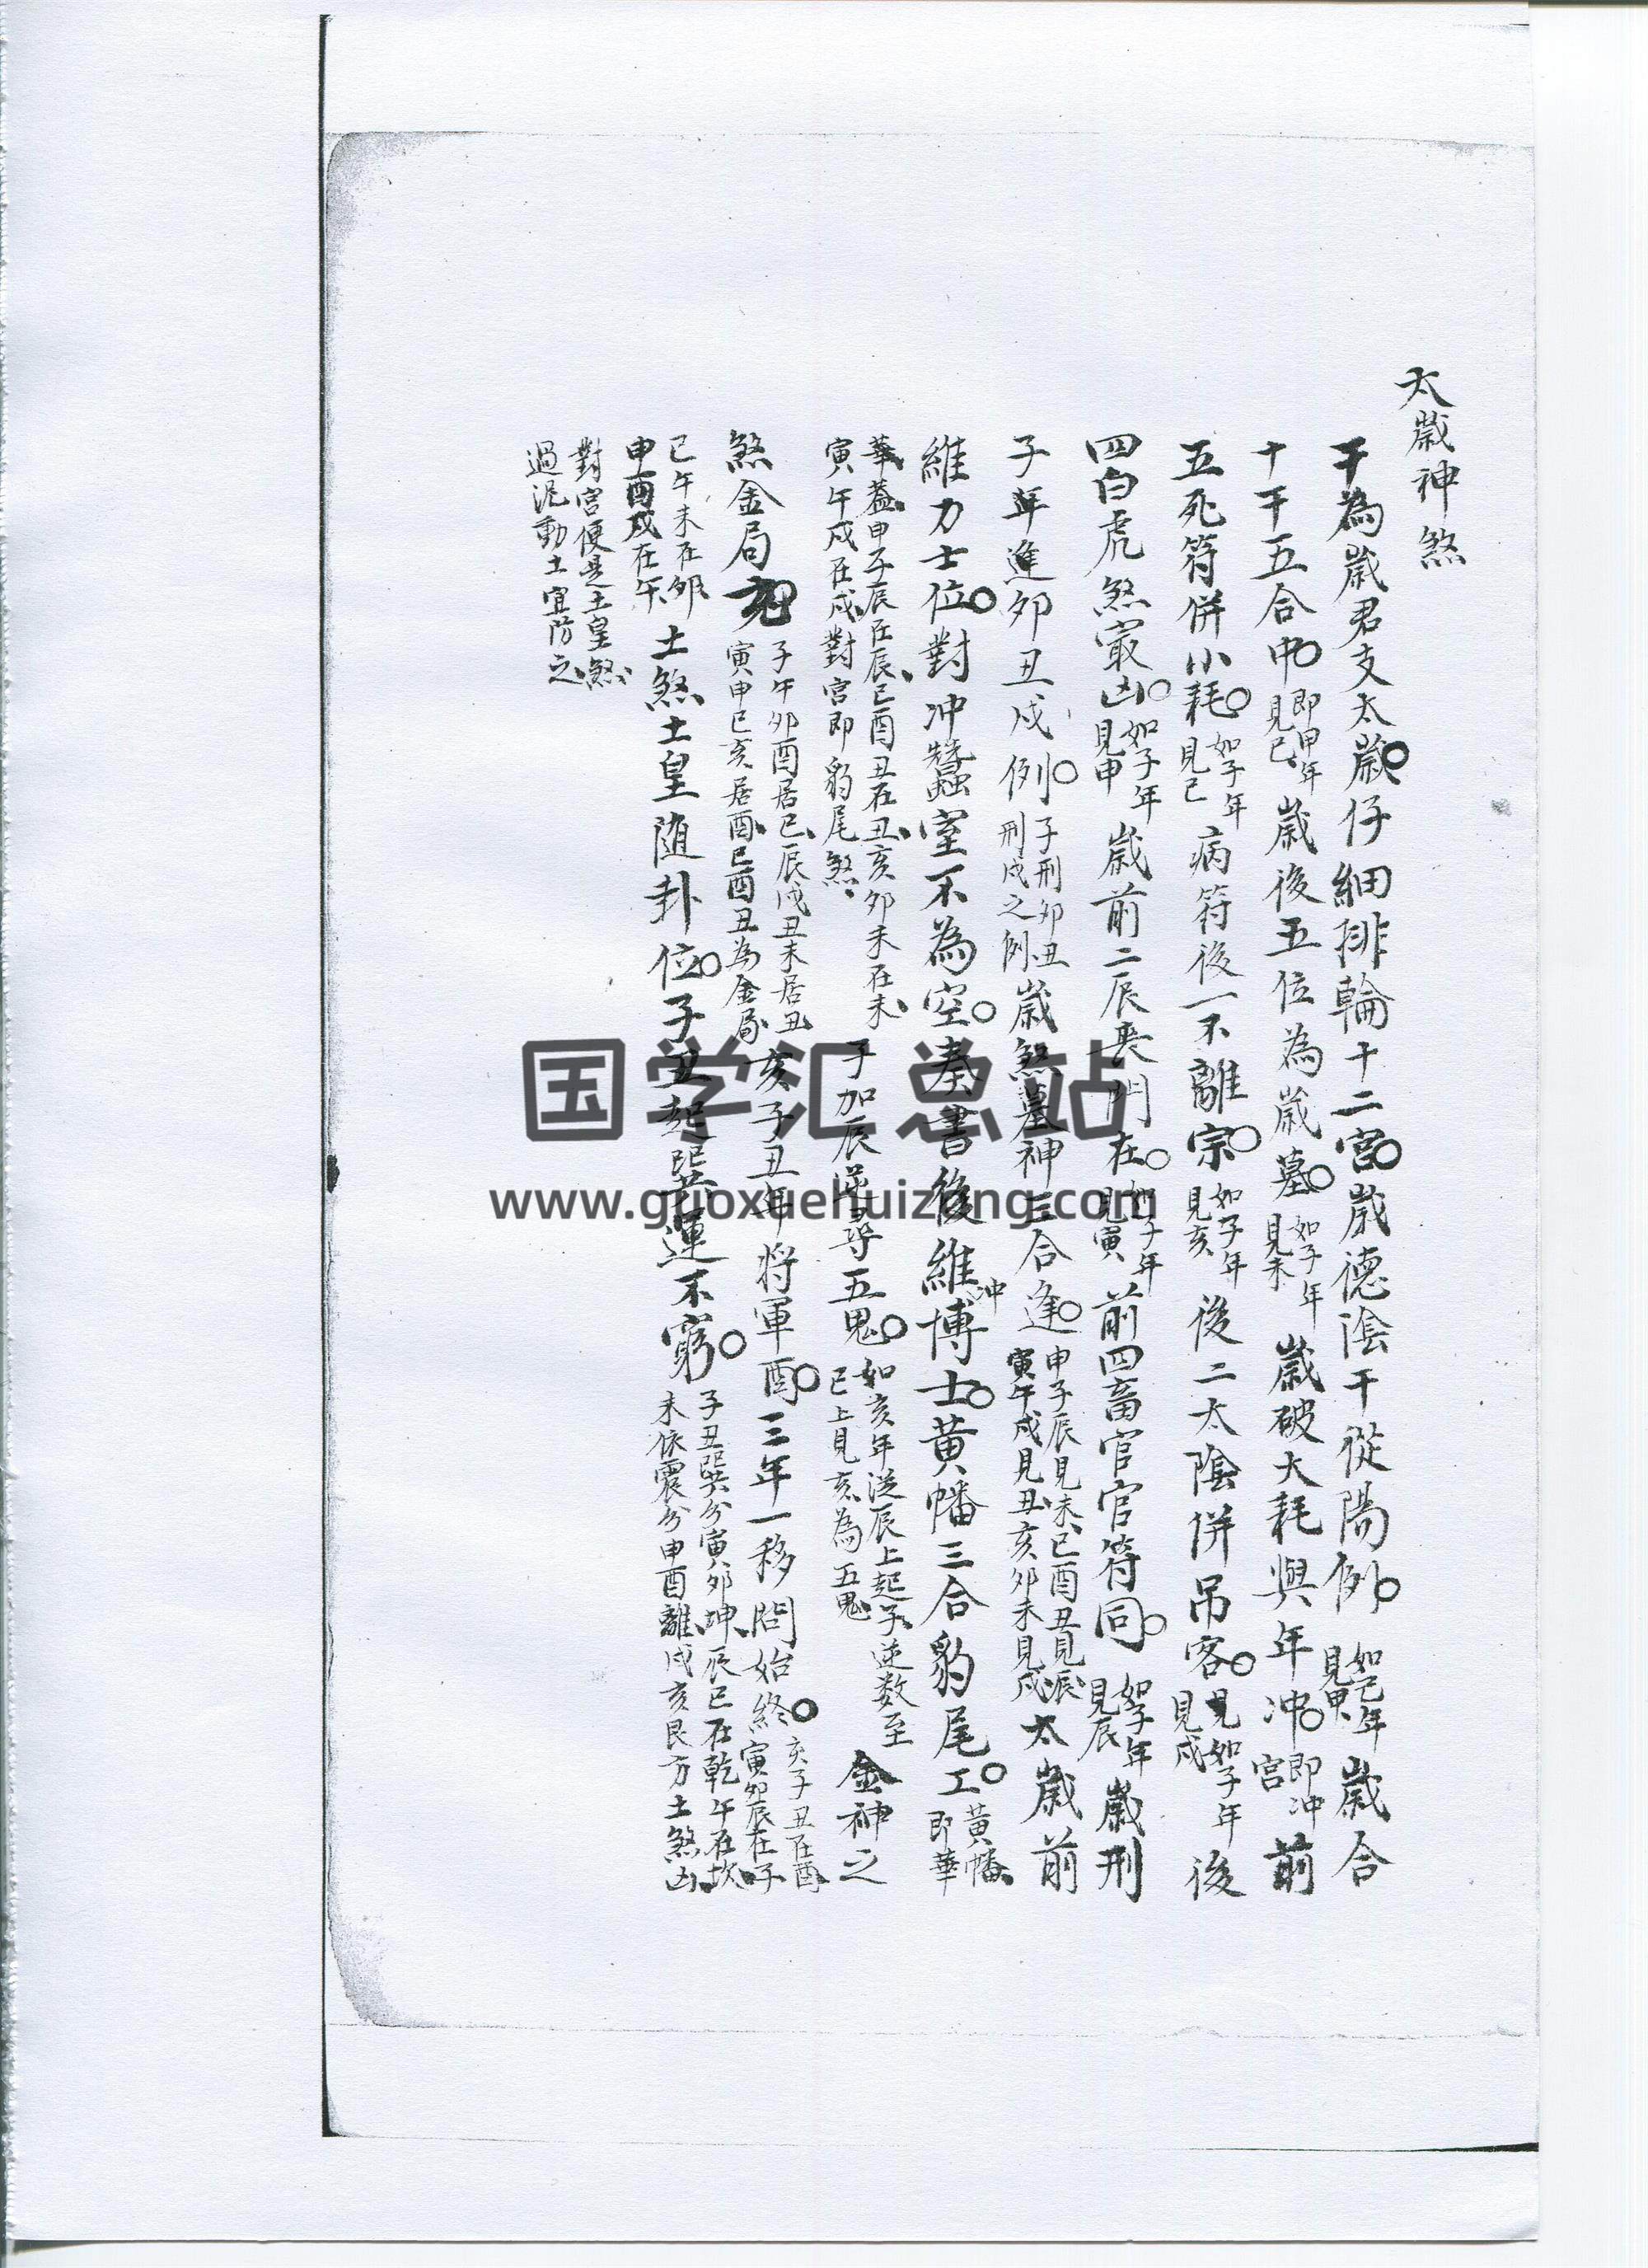 太歲神煞
干為歲君支太歲○仔細排輪十二宮○歲德陰干從陽例○如己年見甲歲合
十干五合中○即甲年見己歲後五位為歲墓○如子年見未歲破大耗與年冲○即冲宮前
五死符併小耗○如子年見巳病符後一不離宗○如子年見亥後二太陰併吊客○見如子年見戌後
四白虎煞最凶○如子年見申歲前二辰喪門在○如子年見寅前四畜官官符同○如子年見辰歲刑
子年進卯丑戌例○子刑卯丑刑戌之例歲煞墓神三合逢○申子辰見未巳酉丑見辰寅午戌見丑亥卯未見戌太歲前
維力士位○對冲蠶室不為空○奏書後維博士○冲黃幡三合豹尾工○黃幡即華
華蓋申子辰在辰巳酉丑在丑亥卯未在未寅午戌在戌對宮即豹尾煞子加辰逆尋五鬼○如亥年從辰上起子逆数至巳上見亥為五鬼金神之
煞金局 子午卯酉居巳辰戌丑未居丑寅申巳亥居酉巳酉丑為金局亥子丑年将軍酉○三年一移問始終○亥子丑在酉寅卯辰在子
巳午未在卯申酉戌在午土煞土皇随卦位○子丑起巽運不窮○子丑巽分寅卯坤辰巳在乾午在坎未依震分申酉離戌亥艮方土煞凶
對宮便是土皇煞
過泥動土宜防之
国学汇总站
www.guoxuehuizong.com